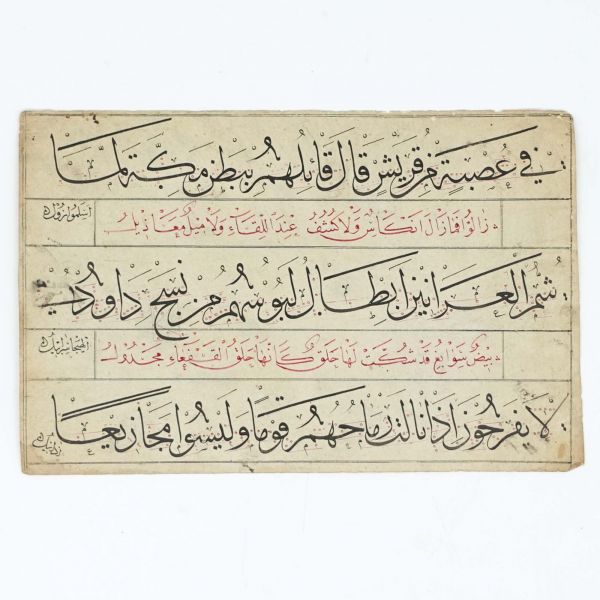 في عصبة من قريش قال قائلهم ببطن مكة لما
اسلموا زولوا
زالوا فما زال انكاس ولا كشف عند اللقاء ولا ميل معاذيل
شم العرانين ابطال لبوسهم من نسج داود في
الهيجا سرابيل
بيض سوابغ قد شكت لها حلق كانها حلق القفعاء مجدول
لا يفرحون اذا نالت رماحهم قوما وليسوا مجازيعا